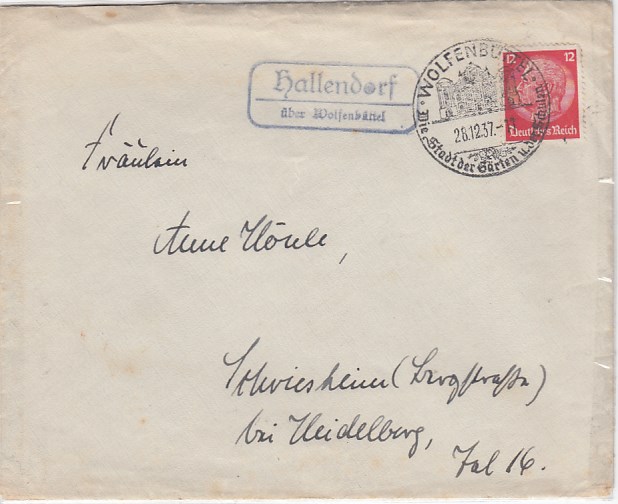 Hallendorf
über Wolfenbüttel
WOLFENBÜTTEL
28.12.37.
Die Stadt der Gärten u.
12 12
Deutsches Reich
Fräulein
Anne
Schriesheim (Bergstraße)
bei Heidelberg,
Tal 16.